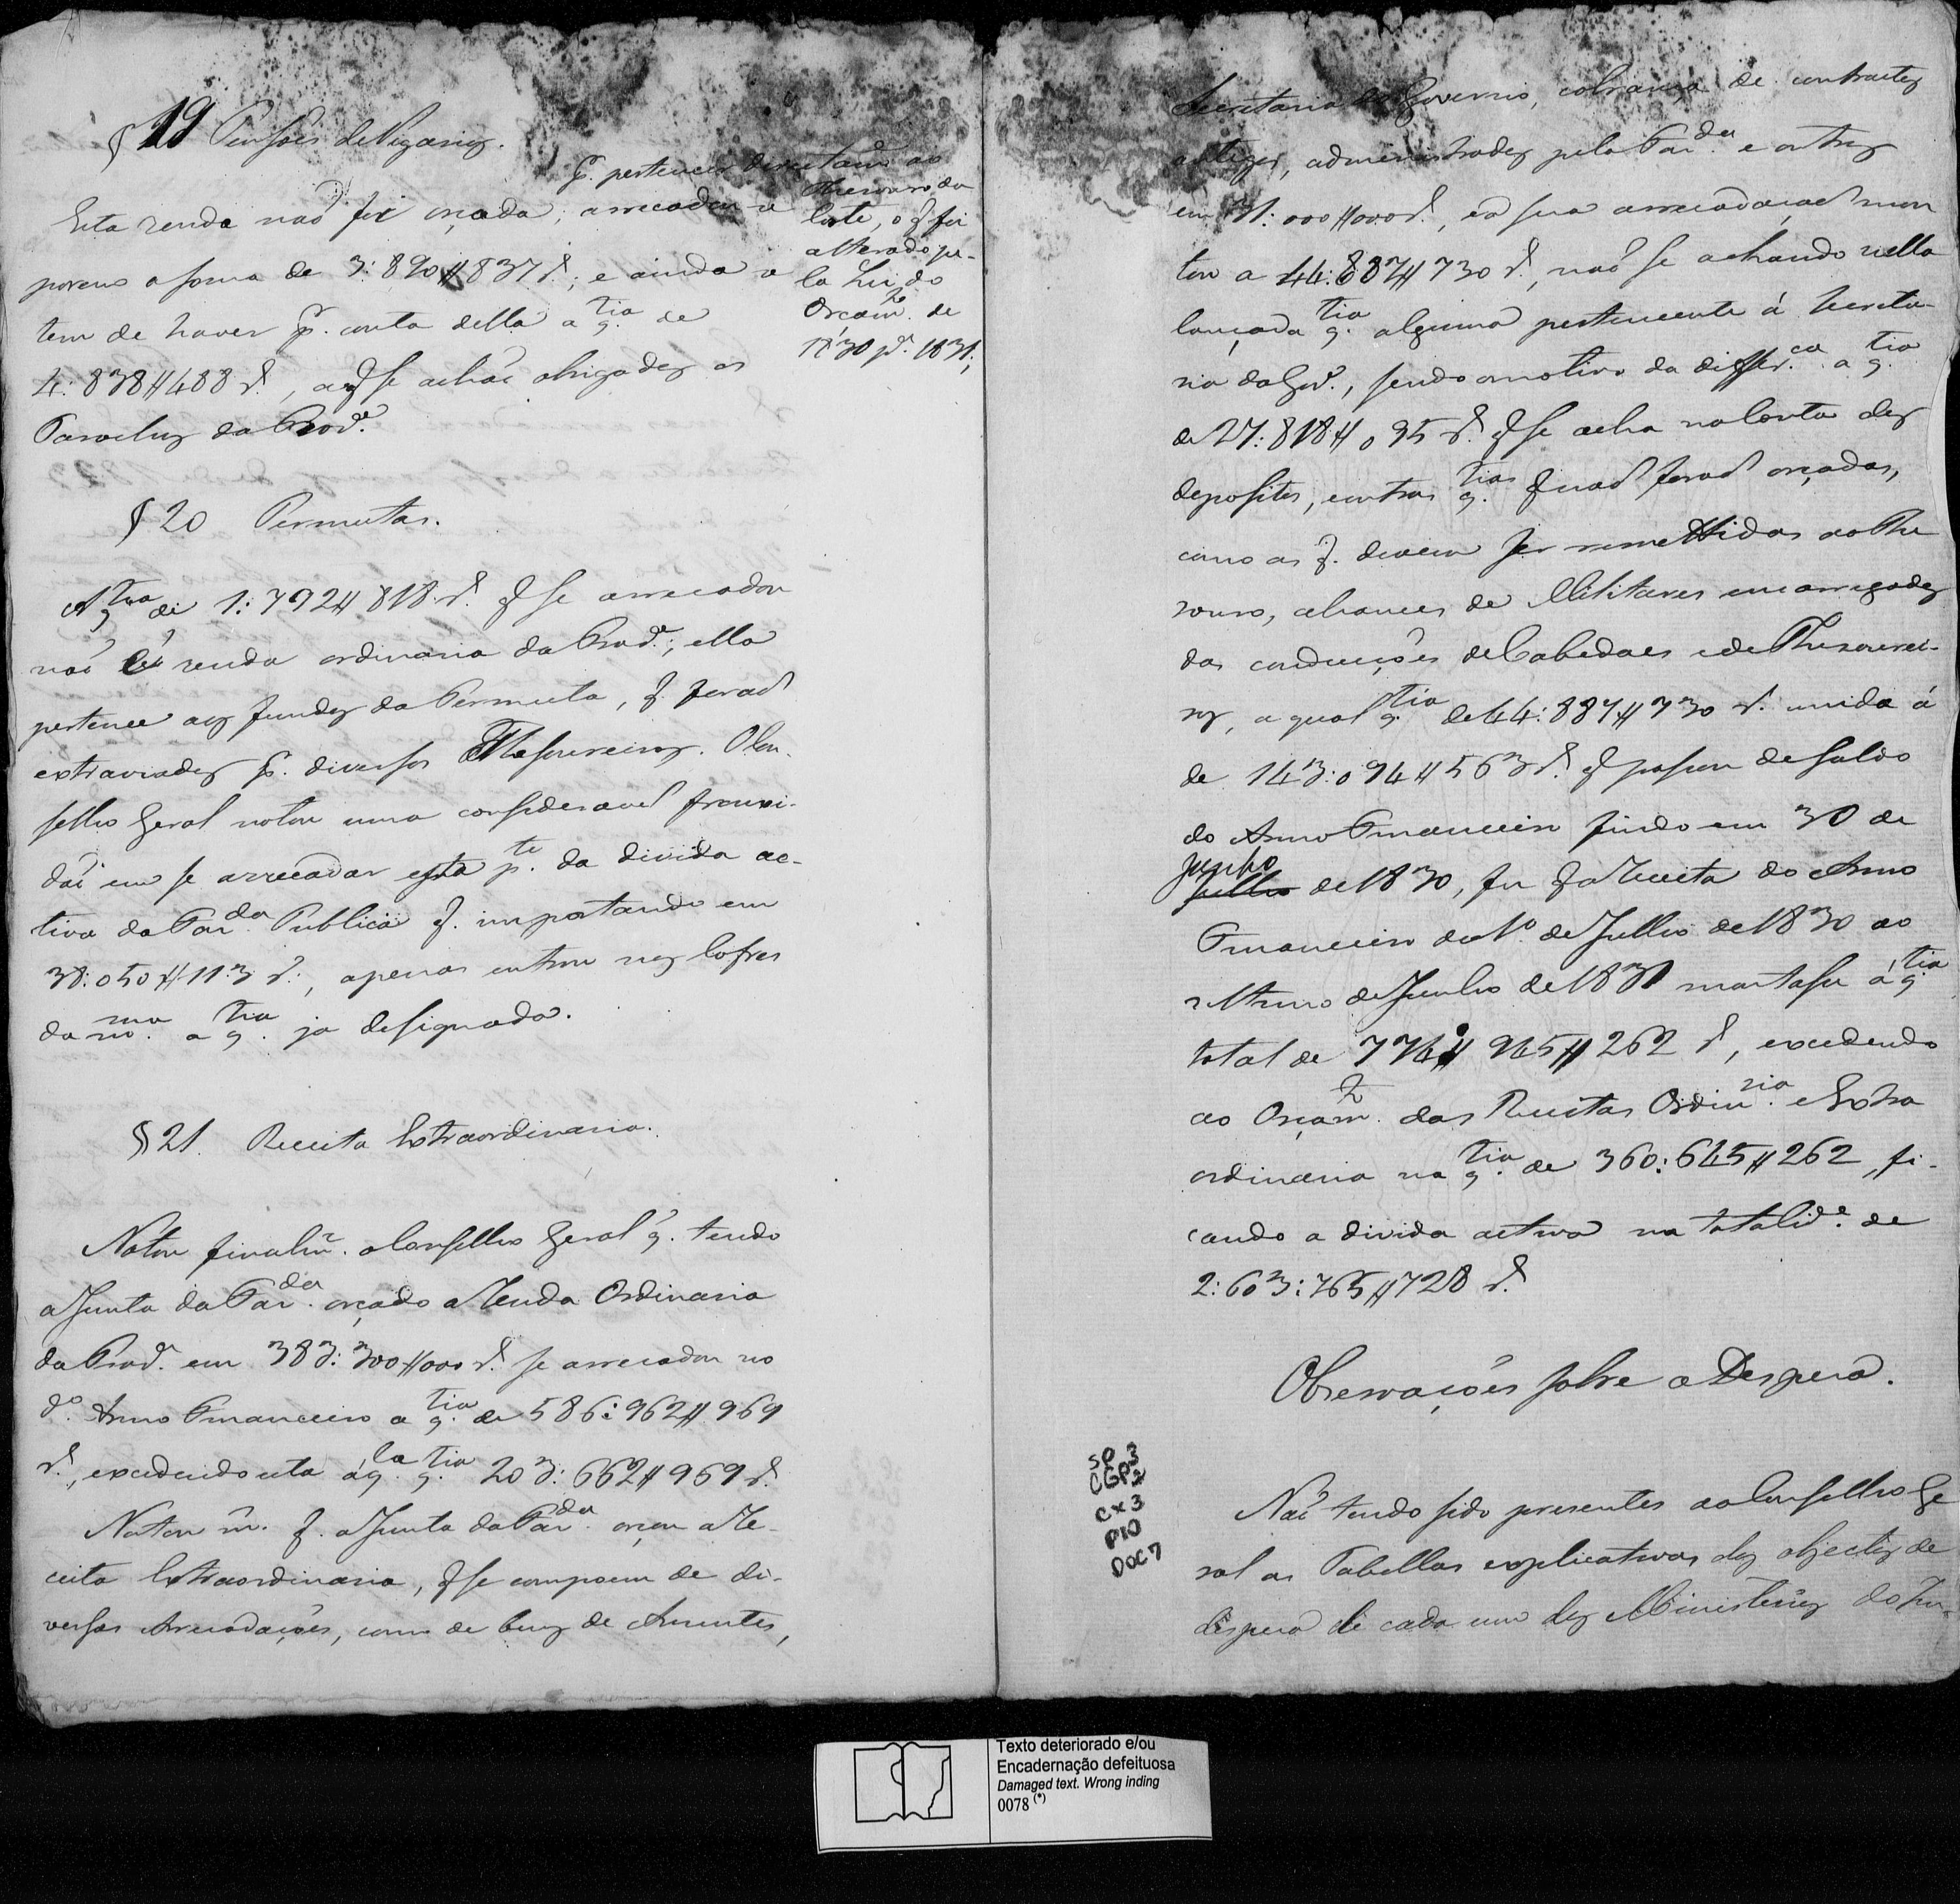 § 19 Pensões de Vigarios.
Esta renda naõ foi orçada; arrecadou-se
porem a soma de 3:890#837 rs.; e ainda se
tem de haver p. conta della a qtia. de
4:838#488 rs., a q se achaõ obrigados os
Parochos da Provª.
p. pertencer directamte ao
Thesouro da
Corte, o q foi
alterado pe-
la Lei do
Orçamto. de
1830 pª. 1831;
§ 20 Permutas.
A qtia de 1:792#818 rs. q se arrecadou
naõ hé renda ordinaria da Provª.; ella
pertence aos fundos da Permuta, q. foraõ
extraviados p. diversos Thesoureiros. O Con-
selho Geral notou uma consideravel frouxi-
daõ em se arrecadar esta pte. da divida ac-
tiva da Fazda. Publica q. importando em
38:050#113 rs., apenas entrou nos Cofres
da mma. a qtia. ja designada.
§ 21. Receita Extraordinaria.
Notou finalmte. o Conselho Geral q. tendo
a Junta da Fazda. orçado a Renda Ordinaria
da Provª. em 383:300#000 rs. se arrecadou no
dº. Anno Financeiro a qtia. de 586:962#969
rs., excedendo esta áqla. qtia. 203:662#969 rs.
Notou m. q. a Junta da Fazda. orçou a Re-
ceita Extraordinaria, q se compoem de di-
versas Arrecadações, como de bens de Ausentes,
Secretaria do Governo, cobrança de contractos
antigos, administrados pela Fazda. e outros
em 31:000#000 rs., e a sua arrecadaçaõ mon
tou a 44:887#730 rs., naõ se achando nella
lançada qtia. alguma pertencente á Secreta-
ria do Govº., sendo o motivo da differca. a qtia.
de 27:818#095 rs. q se acha na Conta dos
depositos, e outras qtias. q naõ foraõ orçadas,
como as q. devem ser remettidas ao The
souro, alcances de Militares encarregados
das conducções de Cabedaes e de Thesourei-
ros, a qual qtia. de 44:887#730 rs. unida á
de 143:094#563 rs. q passou de saldo
do Anno Financeiro findo em 30 de
Junho
Julho de 1830, fez q a Receita do Anno
Financeiro do 1º. de Julho de 1830 ao
ultimo de Junho de 1831 montasse á qtia.
total de 774:945#262 rs, excedendo
ao Orçamto. das Receitas Ordinria. e Extra
ordinaria na qtia. de 360:645#262, fi-
cando a divida activa na totalide. de
2:603:765#728 rs.
Observações sobre a Despeza.
Naõ tendo sido presentes ao Conselho Ge
ral as Tabellas explicativas dos objectos de
despeza de cada um dos Ministerios do Im-
SP 3
CGP2
CX3
P10
DOC7
Texto deteriorado e/ou
Encadernação defeituosa
Damaged text. Wrong inding
0078 (*)